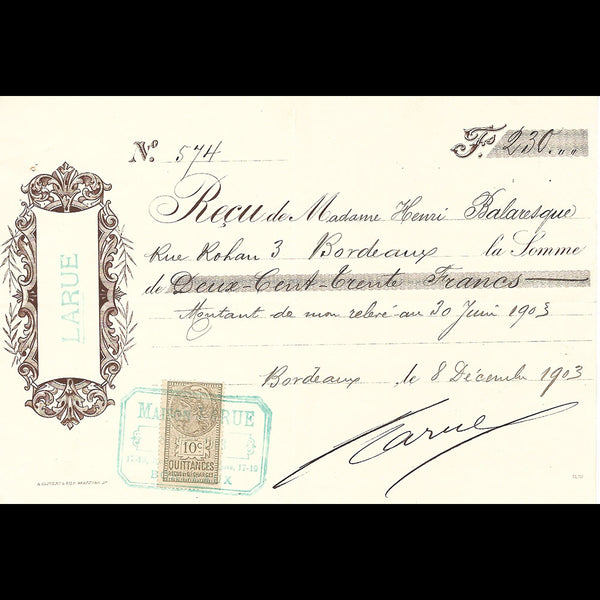 N.º 574
Fs 230 ...,,
Reçu de Madame Henri Balaresque
Rue Rohan 3 Bordeaux la Somme
de Deux-Cent-Trente Francs
Montant de mon relevé au 30 Juin 1903
Bordeaux, le 8 Décembre 1903
Larue
LARUE
MAISON LARUE
17-19
10c
QUITTANCES
REÇUS ET DÉCHARGES